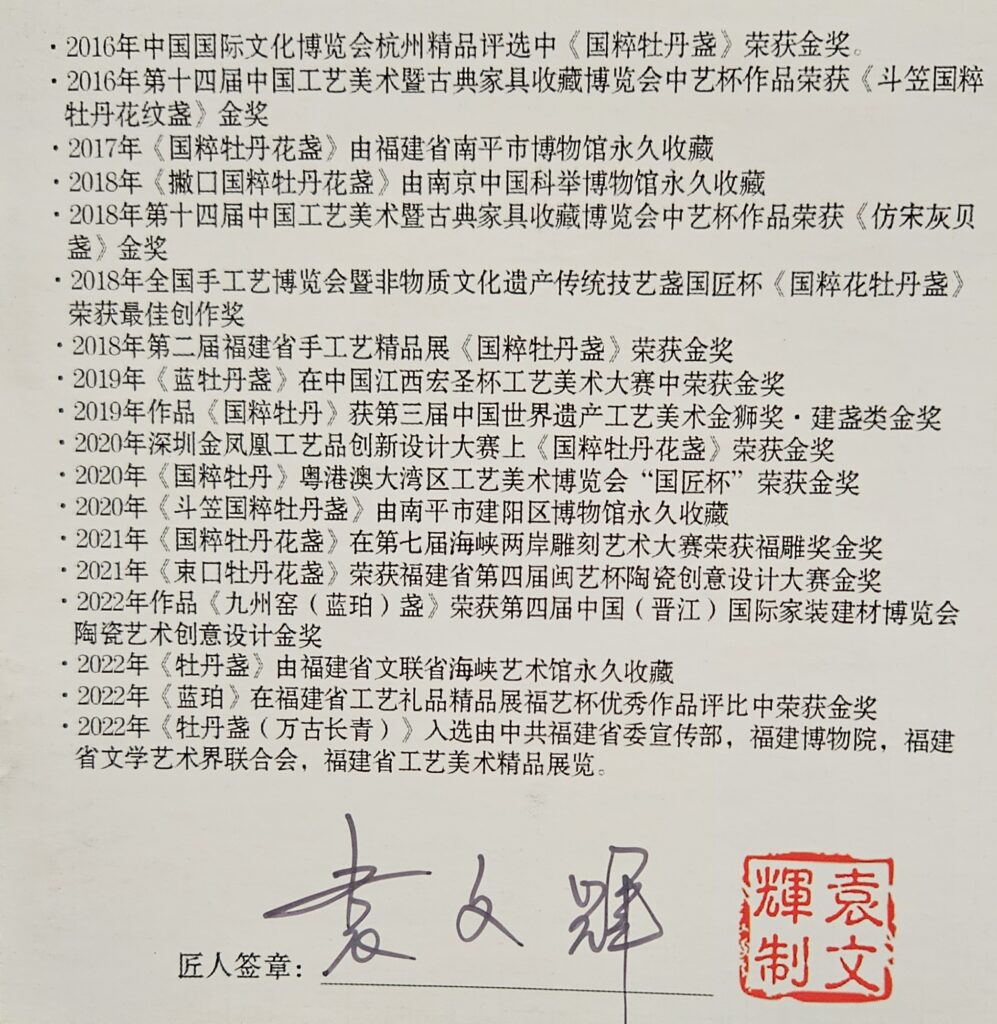 ·2016年中国国际文化博览会杭州精品评选中《国粹牡丹盏》荣获金奖。
·2016年第十四届中国工艺美术暨古典家具收藏博览会中艺杯作品荣获《斗笠国粹
牡丹花纹盏》金奖
·2017年《国粹牡丹花盏》由福建省南平市博物馆永久收藏
·2018年《撇口国粹牡丹花盏》由南京中国科举博物馆永久收藏
·2018年第十四届中国工艺美术暨古典家具收藏博览会中艺杯作品荣获《仿宋灰贝
盏》金奖
·2018年全国手工艺博览会暨非物质文化遗产传统技艺盏国匠杯《国粹花牡丹盏》
荣获最佳创作奖
·2018年第二届福建省手工艺精品展《国粹牡丹盏》荣获金奖
·2019年《蓝牡丹盏》在中国江西宏圣杯工艺美术大赛中荣获金奖
·2019年作品《国粹牡丹》获第三届中国世界遗产工艺美术金狮奖·建盏类金奖
·2020年深圳金凤凰工艺品创新设计大赛上《国粹牡丹花盏》荣获金奖
·2020年《国粹牡丹》粤港澳大湾区工艺美术博览会“国匠杯”荣获金奖
·2020年《斗笠国粹牡丹盏》由南平市建阳区博物馆永久收藏
·2021年《国粹牡丹花盏》在第七届海峡两岸雕刻艺术大赛荣获福雕奖金奖
·2021年《束口牡丹花盏》荣获福建省第四届闽艺杯陶瓷创意设计大赛金奖
·2022年作品《九州窑（蓝珀）盏》荣获第四届中国（晋江）国际家装建材博览会
陶瓷艺术创意设计金奖
·2022年《牡丹盏》由福建省文联省海峡艺术馆永久收藏
·2022年《蓝珀》在福建省工艺礼品精品展福艺杯优秀作品评比中荣获金奖
·2022年《牡丹盏（万古长青）》入选由中共福建省委宣传部，福建博物院，福建
省文学艺术界联合会，福建省工艺美术精品展览。
匠人签章：袁文辉
袁文
輝制